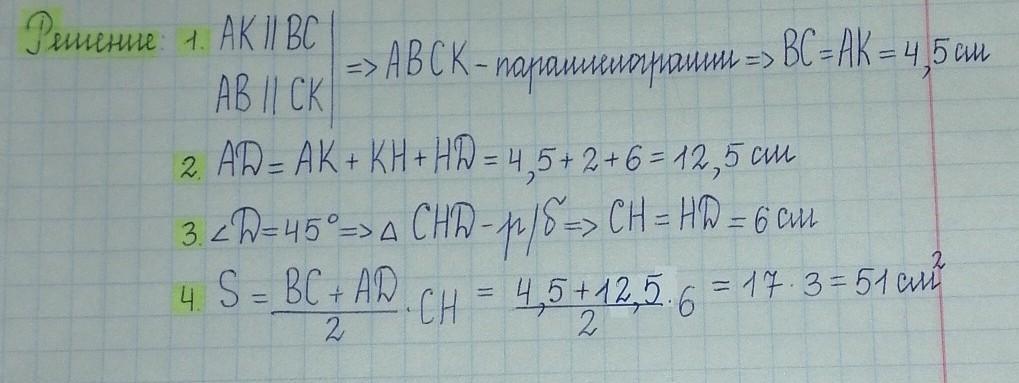 Решение: 1. AK || BC
AB || CK | => ABCK - параллелограмм => BC = AK = 4,5 см
2. AD = AK + KH + HD = 4,5 + 2 + 6 = 12,5 см
3. ∠D = 45° => △ CHD - р/б => CH = HD = 6 см
4. S = (BC + AD)/2 · CH = (4,5 + 12,5)/2 · 6 = 17 · 3 = 51 см²